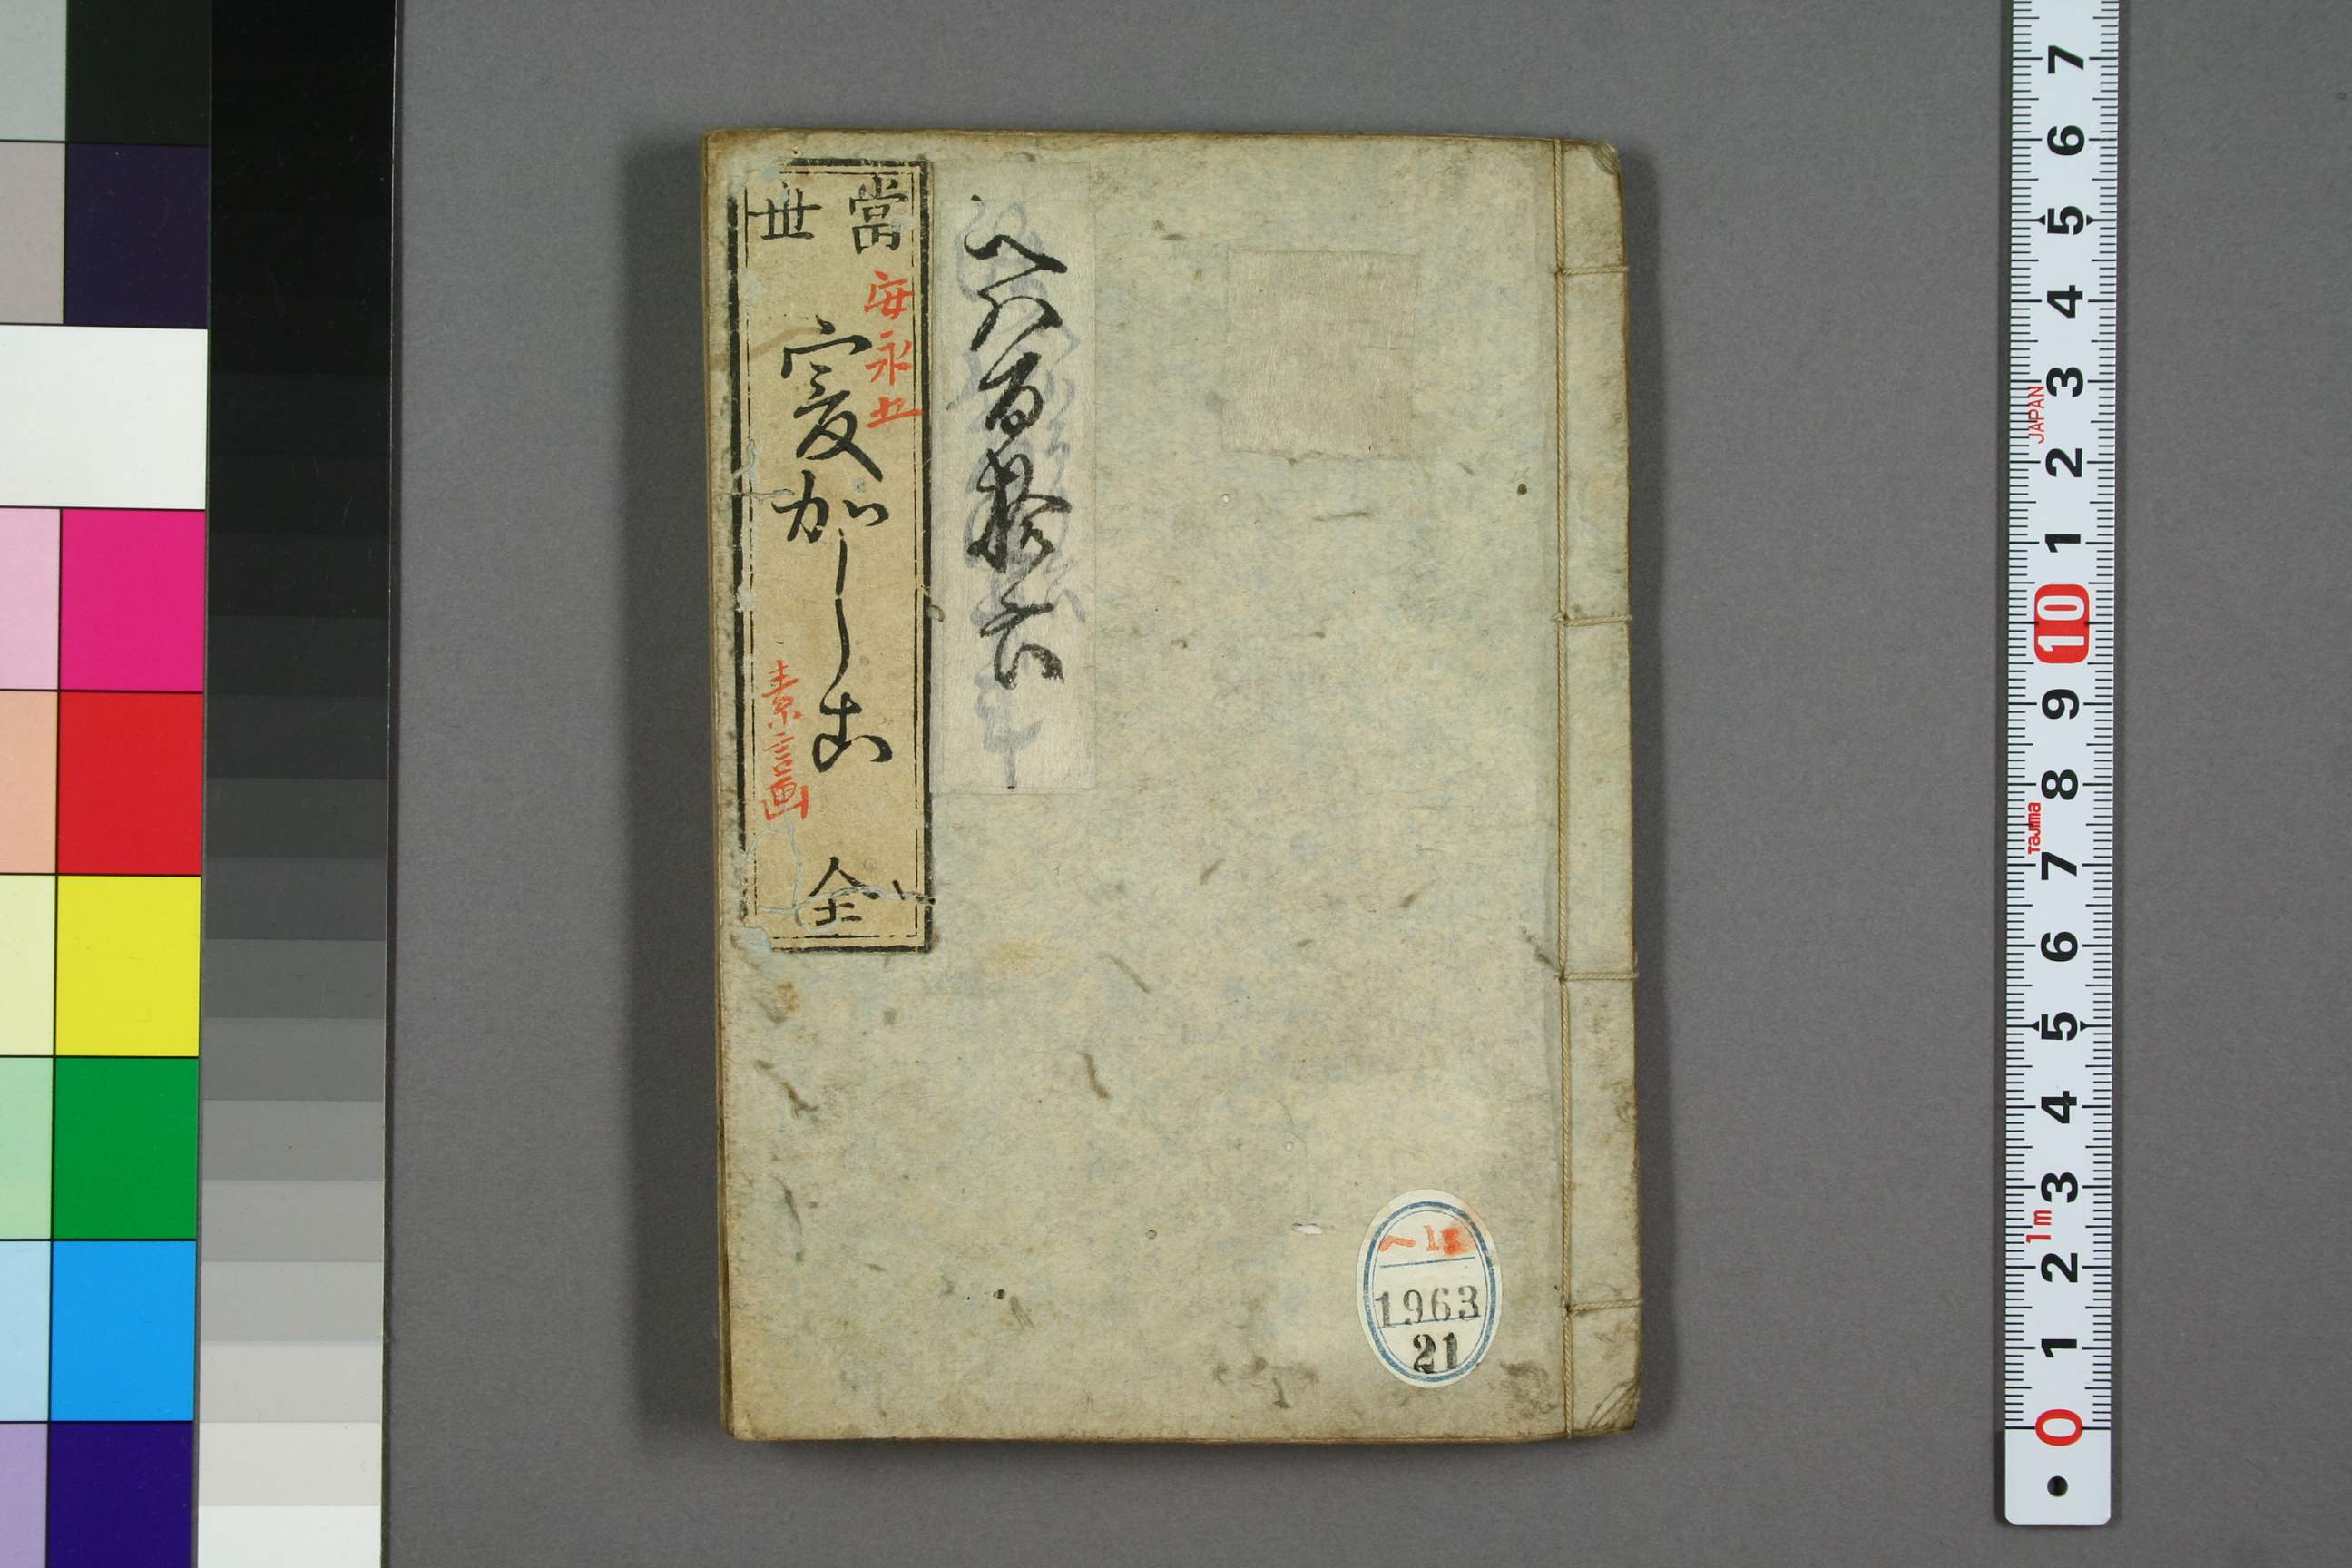 當世
爰かしこ
全
安永五
素言画
八百拾六
1963
21
JAPAN
Tajima
1m
7
6
5
4
3
2
1
10
9
8
7
6
5
4
3
2
1
0